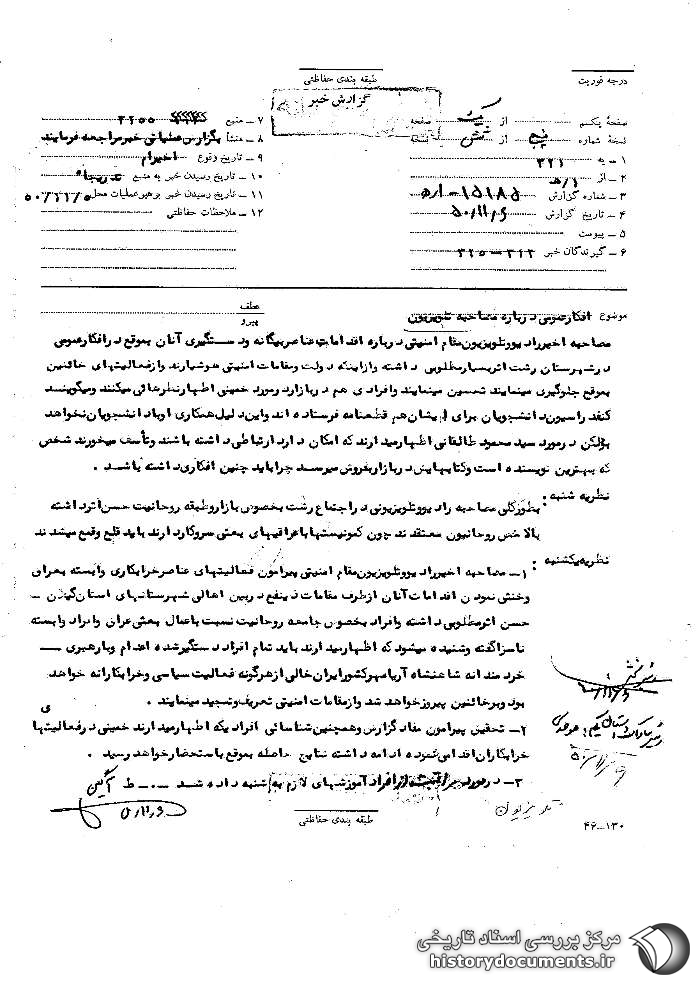 درجه فوریت
طبقه بندی حفاظتی
گزارش خبر
صفحهٔ یکم از یک صفحه
نسخهٔ شماره پنج از شش نسخه
۱ ـ به ۳۲۱
۲ ـ از ۱/ه
۳ ـ شماره گزارش ۱۵۱۸۵ـ۱/ه
۴ ـ تاریخ گزارش ۵۰/۱۱/۶
۵ ـ پیوست
۶ ـ گیرندگان خبر ۳۱۲ـ۳۲۵
۷ ـ منبع ۳۲۵۵
۸ ـ منشأ بگزارش عملیاتی خبر مراجعه فرمایند
۹ ـ تاریخ وقوع اخیرا
۱۰ ـ تاریخ رسیدن خبر به منبع تدریجا
۱۱ ـ تاریخ رسیدن خبر برهبر عملیات محل ۵۰/۱۱/۵
۱۲ ـ ملاحظات حفاظتی
موضوع افکار عمومی درباره مصاحبه تلویزیون
عطف
پیرو
مصاحبه اخیر رادیو و تلویزیون مقام امنیتی درباره اقدامات عناصر بیگانه و دستگیری آنان بموقع در افکار عمومی
در شهرستان رشت اثر بسیار مطلوبی داشته و از اینکه دولت و مقامات امنیتی هوشیارند و از فعالیتهای خائنین
بموقع جلوگیری مینمایند تحسین مینمایند و افرادی هم در بازار در مورد خمینی اظهار نظرهائی میکنند و میگویند
کنفدراسیون دانشجویان برای ایشان هم قطعنامه فرستاده اند و این دلیل همکاری او با دانشجویان نخواهد
بود لکن در مورد سید محمود طالقانی اظهار میدارند که امکان دارد ارتباطی داشته باشند و تأسف میخورند شخص
که بهترین نویسنده است و کتابهایش در بازار بفروش میرسد چرا باید چنین افکاری داشته باشد .
نظریه شنبه : بطور کلی مصاحبه رادیو و تلویزیونی در اجتماع رشت بخصوص بازار و طبقه روحانیت حسن اثر داشته
بالاخص روحانیون معتقدند چون کمونیستها با عراقیهای بعثی سر و کار دارند باید قلع و قمع میشدند
نظریه یکشنبه : ۱ـ مصاحبه اخیر رادیو و تلویزیون مقام امنیتی پیرامون فعالیتهای عناصر خرابکاری وابسته بعراق
و خنثی نمودن اقدامات آنان از طرف مقامات ذینفع در بین اهالی شهرستانهای استان گیلان ـ
حسن اثر مطلوبی داشته و افراد بخصوص جامعه روحانیت نسبت باعمال بعثی عراق و افراد وابسته
ناسزا گفته و شنیده میشود که اظهار میدارند باید تمام افراد دستگیر شده اعدام و با رهبری ـ
خردمندانه شاهنشاه آریامهر کشور ایران خالی از هرگونه فعالیت سیاسی و خرابکارانه خواهد
بود و بر خائنین پیروز خواهد شد و از مقامات امنیتی تعریف و تمجید مینمایند .
۲ـ تحقیق پیرامون مفاد گزارش و همچنین شناسائی افرادیکه اظهار میدارند خمینی در فعالیتهای
خرابکاران اقدامی ننموده ادامه داشته نتایج حاصله بموقع باستحضار خواهد رسید .
۳ـ در مورد مراقبت از افراد آموزشهای لازم به شنبه داده شد ـ.ـ ط
طبقه بندی حفاظتی
تلویزیون
۴۶ـ۱۳۰
مرکز بررسی اسناد تاریخی
historydocuments.ir